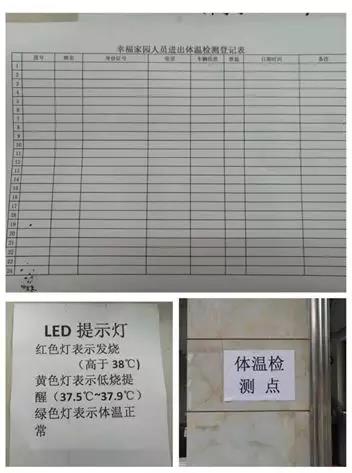 幸福家园人员进出体温检测登记表
房号 姓名 身份证号 电话 车辆信息 体温 日期时间 备注
1
2
3
4
5
6
7
8
9
10
11
12
13
14
15
16
17
18
19
20
21
22
23
24
LED 提示灯
红色灯表示发烧
（高于 38℃)
黄色灯表示低烧提
醒（37.5℃~37.9℃）
绿色灯表示体温正
常
体温检
测 点